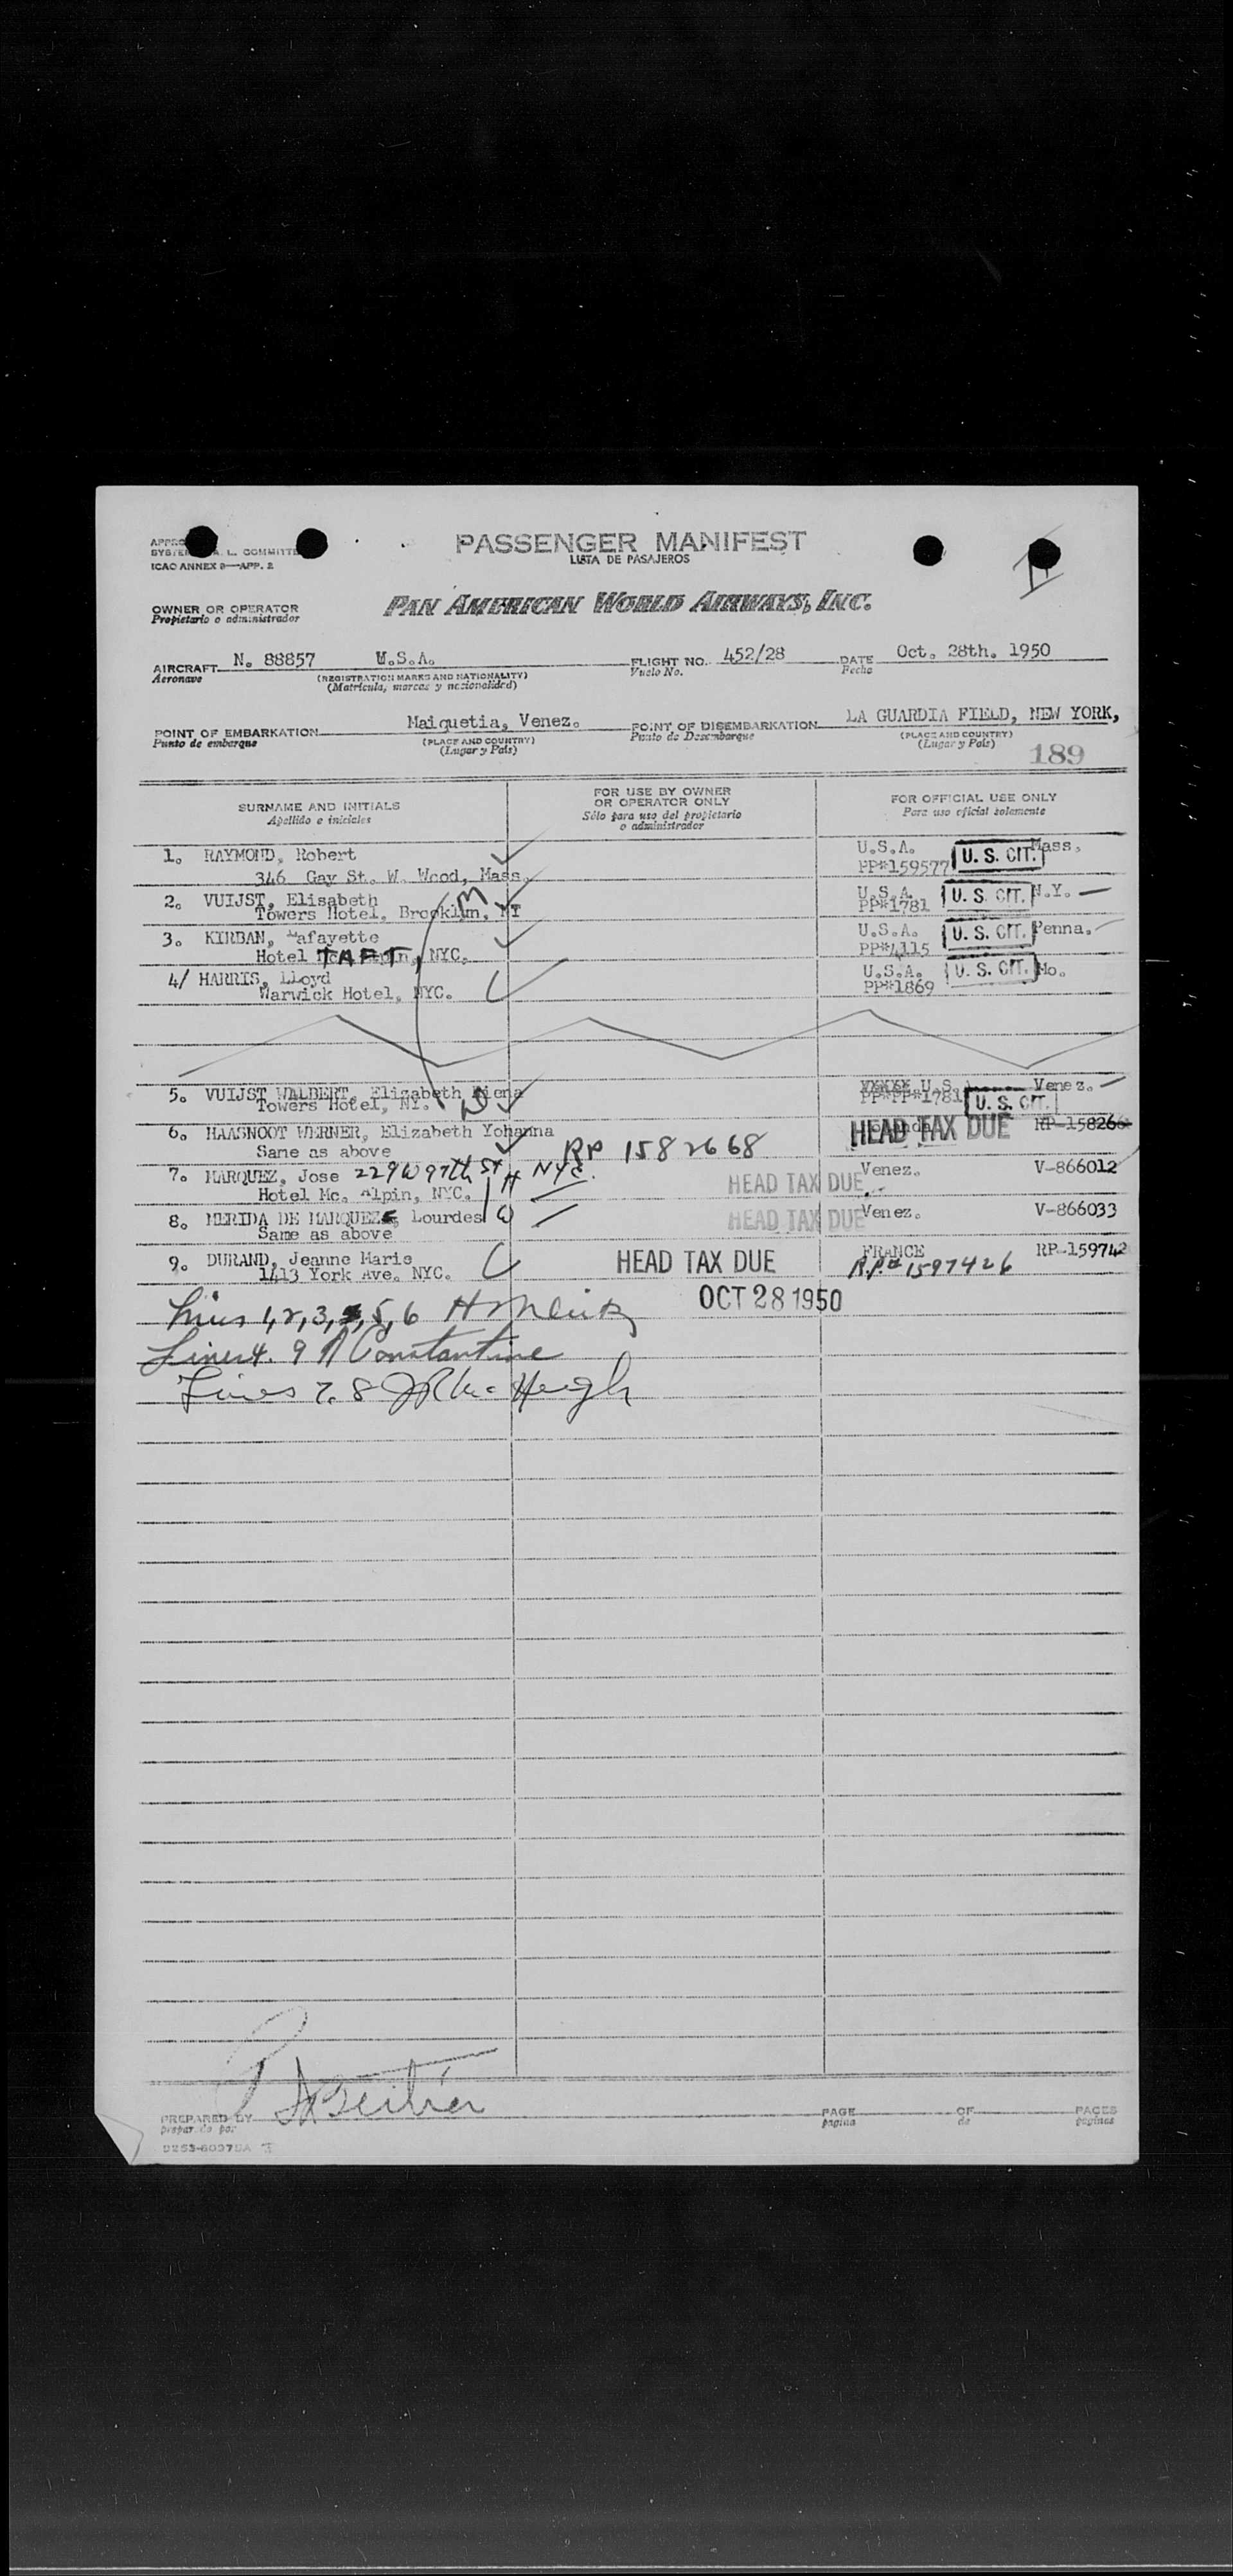 PASSENGER MANIFEST
LISTA DE PASAJEROS
L. COMMITTE
ICAO ANNEX 9—APP. 2
OWNER OR OPERATOR
Propietario o administrador
PAN AMERICAN WORLD AIRWAYS, INC.
AIRCRAFT N. 88857 U.S.A. FLIGHT NO. 452/28 DATE Oct. 28th. 1950
Aeronave (REGISTRATION MARKS AND NATIONALITY) Vuelo No. Fecha
(Matrícula, marcas y nacionalidad)
POINT OF EMBARKATION Maiquetia, Venez. POINT OF DISEMBARKATION LA GUARDIA FIELD, NEW YORK,
Punto de embarque (PLACE AND COUNTRY) Punto de Desembarque (PLACE AND COUNTRY)
(Lugar y País) (Lugar y País)
189
SURNAME AND INITIALS FOR USE BY OWNER OR OPERATOR ONLY FOR OFFICIAL USE ONLY
Apellido e iniciales Sólo para uso del propietario o administrador Para uso oficial solamente
1. RAYMOND, Robert U.S.A. U. S. CIT. Mass.
346 Gay St. W. Wood, Mass. PP#159577
2. VUIJST, Elisabeth U.S.A. U. S. CIT. N.Y.
Towers Hotel, Brooklyn, NY PP#1781
3. KIRBAN, Lafayette U.S.A. U. S. CIT. Penna.
Hotel TAFT, NYC. PP#4115
4/ HARRIS, Lloyd U.S.A. U. S. CIT. Mo.
Warwick Hotel, NYC. PP#1869
5. VUIJST WALBERT, Elizabeth U.S. Venez.
Towers Hotel, NY. PP#PP#1781 U. S. CIT.
6. HAASNOOT WERNER, Elizabeth Yohanna HEAD TAX DUE RP-158266
Same as above RP 1582668
7. MARQUEZ, Jose 229 W 97th St NYC. Venez. V-866012
Hotel Mc. Alpin, NYC. H HEAD TAX DUE
8. MERIDA DE MARQUEZ, Lourdes W HEAD TAX DUE Venez. V-866033
Same as above
9. DURAND, Jeanne Marie HEAD TAX DUE FRANCE RP-159742
1413 York Ave. NYC. R.P.# 1597426
OCT 28 1950
Lines 1,2,3, 5,6
Lines 4. 9 Constantine
Lines 7. 8
PREPARED BY PAGE OF PAGES
preparado por página de páginas